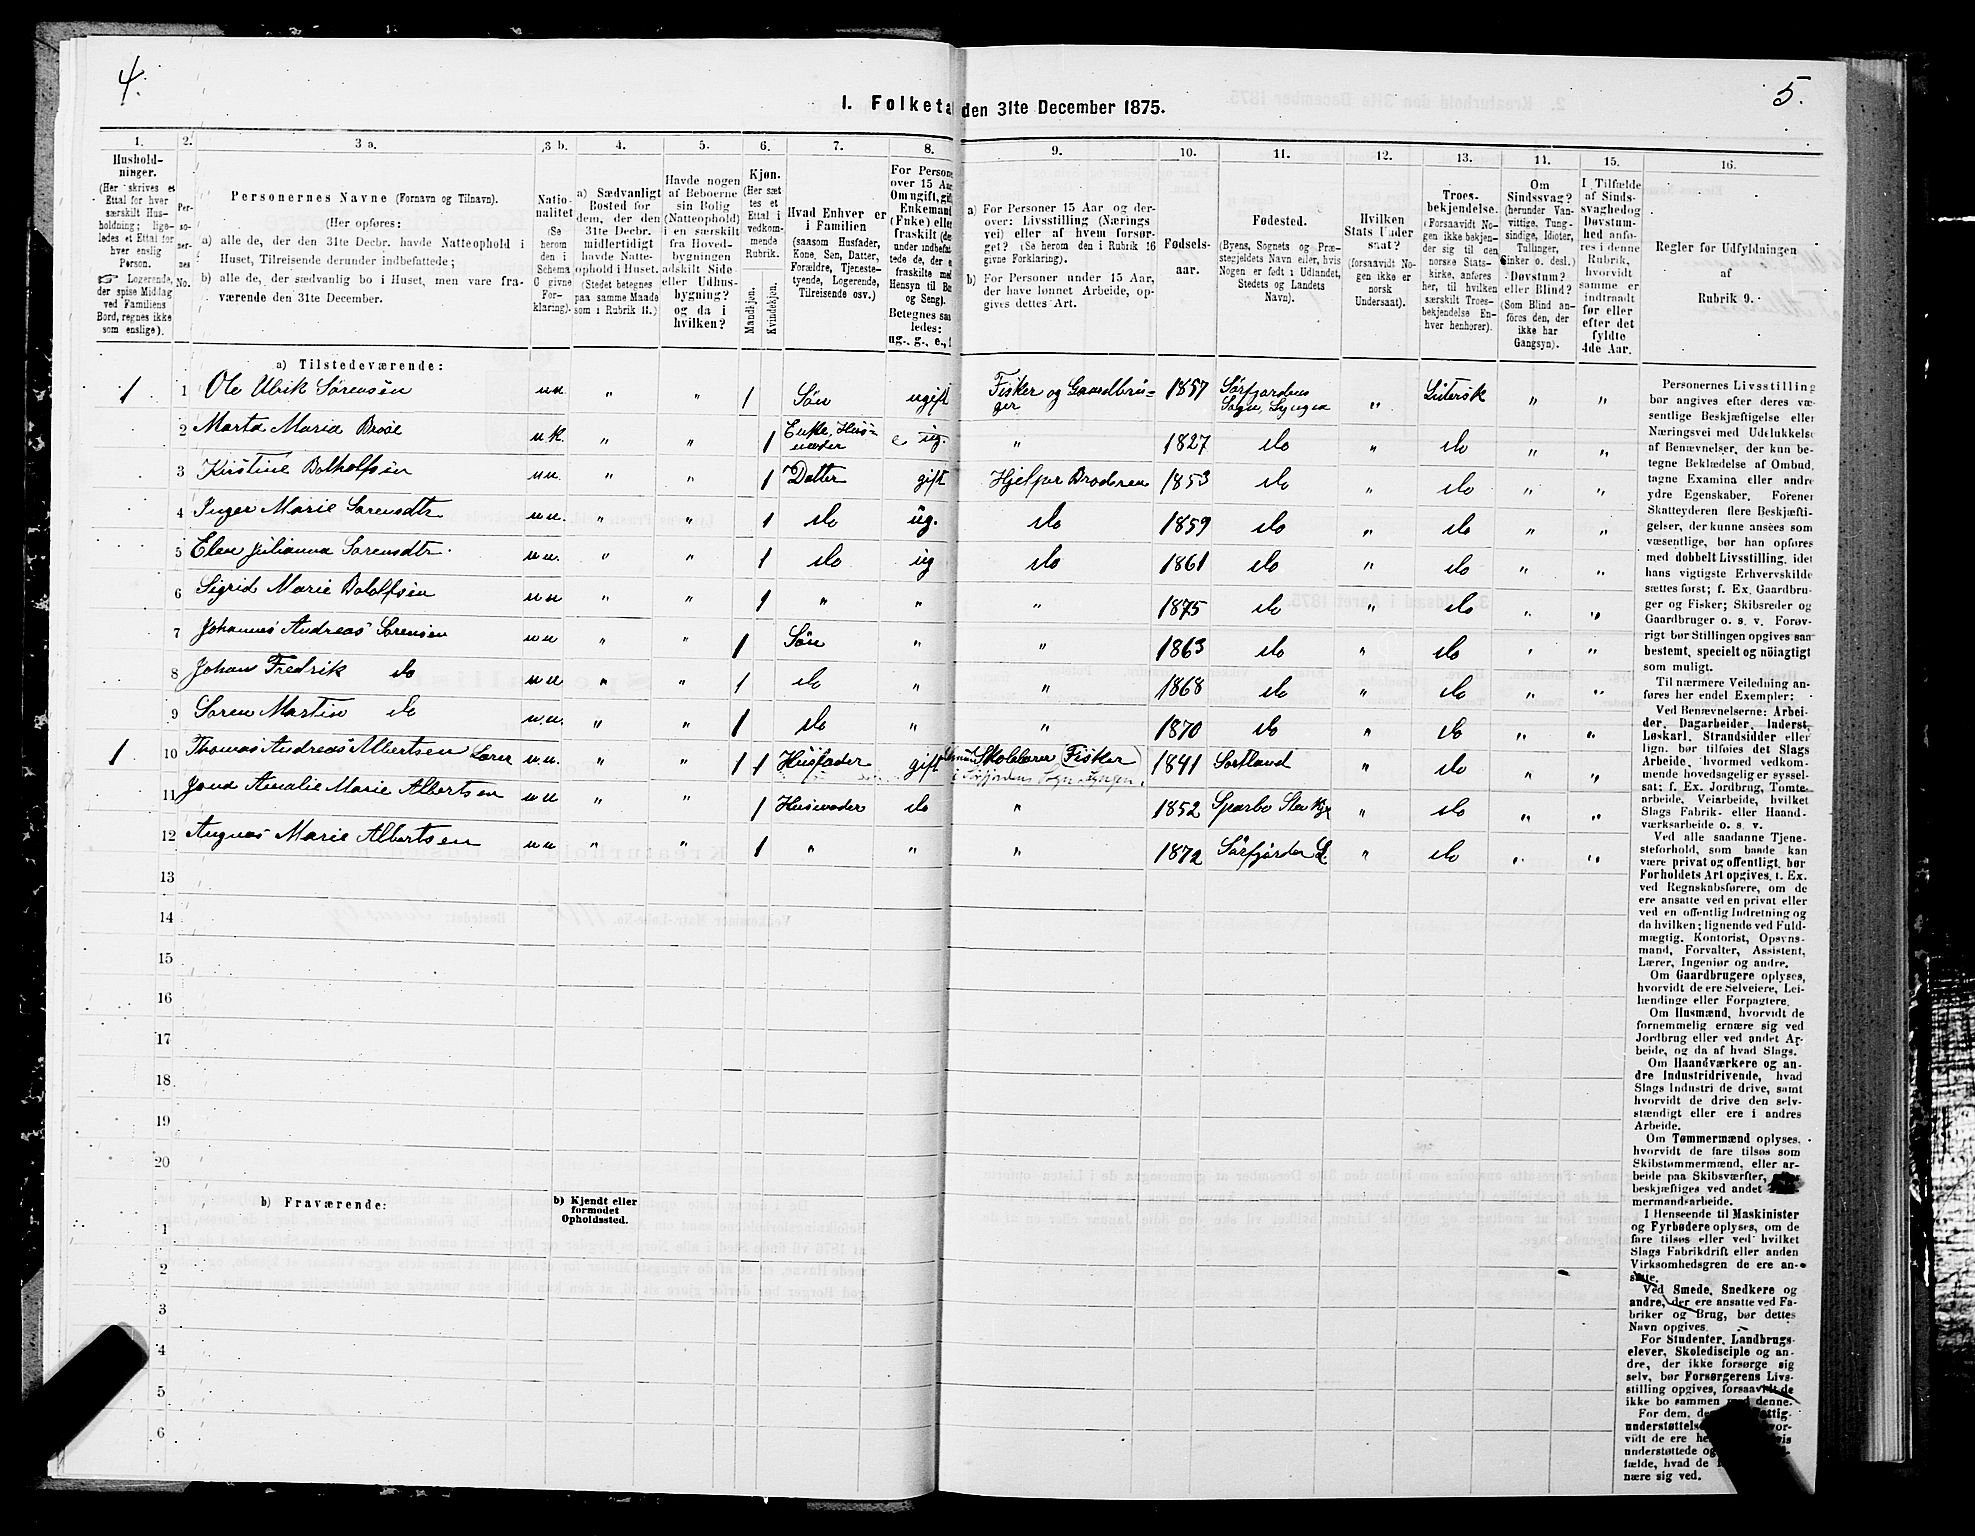 4.
5.
1. Folketa den 31te December 1875.
1. 2. 3 a. 3 b. 4. 5. 6. 7. 8. 9. 10. 11. 12. 13. 14. 15. 16.
Hushold-
ninger.
(Her skrives et
Ettal for hver
særskilt Hus-
holdning; lige-
ledes et Ettal for
hver enslig
Person.
Logerende,
der spise Middag
ved Familiens
Bord, regnes ikke
som enslige).
Per-
so-
ner-
nes
No.
Personernes Navne (Fornavn og Tilnavn).
(Her opføres:
a) alle de, der den 31te Decbr. havde Natteophold i
Huset, Tilreisende derunder indbefattede;
b) alle de, der sædvanlig bo i Huset, men vare fra-
værende den 31te December.
Natio-
nalitet
(Se
herom
den i
Schema
C givne
For-
klaring).
a) Sædvanligt
Bosted for
dem, der den
31te Decbr.
midlertidigt
havde Natte-
ophold i Huset.
(Stedet betegnes
paa samme Maade
som i Rubrik 11.)
Havde nogen
af Beboerne
sin Bolig
(Natteophold)
i en særskilt
fra Hoved-
bygningen
adskilt Side-
eller Udhus-
bygning?
og da i
hvilken?
Kjøn.
(Her sæt-
tes et
Ettal i
vedkom-
mende
Rubrik.
Mandkjøn.
Kvindekjøn.
Hvad Enhver er
i Familien
(saasom Husfader,
Kone, Søn, Datter,
Forældre, Tjeneste-
tyende, Logerende,
Tilreisende osv.)
For Persone
over 15 Aar
Om ugift, gift
Enkemand
(Enke) eller
fraskilt (der
under indbefat-
tede de, der e
fraskilte med
Hensyn til Bo
og Seng).
Betegnes saa
ledes:
ug., g., e.,
a) For Personer 15 Aar og der-
over: Livsstilling (Nærings
vei) eller af hvem forsør-
get? (Se herom den i Rubrik 16
givne Forklaring).
b) For Personer under 15 Aar,
der have lønnet Arbeide, op-
gives dettes Art.
Fødsels-
aar.
Fødested.
(Byens, Sognets og Præ-
stegjeldets Navn eller, hvis
Nogen er født i Udlandet,
Stedets og Landets
Navn).
Hvilken
Stats Under
saat?
(forsaavidt No-
gen ikke er
norsk
Undersaat).
Troes-
bekjendelse.
(Forsaavidt No-
gen ikke bekjen-
der sig til den
norske Stats-
kirke, anføres
her, til hvilken
særskilt Troes-
bekjendelse En-
hver henhører).
Om
Sindssvag?
(herunder Van-
vittige, Tung-
sindige, Idioter,
Tullinger,
Sinker o. desl.).
Døvstum?
eller Blind?
(Som Blind an-
føres den, der
ikke har
Gangsyn).
I Tilfælde
af Sinds-
svaghed og
Døvstum-
hed anfø-
res i denne
Rubrik,
hvorvidt
samme er
indtraadt
før eller
efter det
fyldte
4de Aar.
Regler for Udfyldningen
af
Rubrik 9.
a) Tilstedeværende:
1 1 Ole Ulrik Sørensen n.n. " " 1 Søn ugift Fisker og Gaardbru-
ger 1857 Sørfjordens
Sogn, Lyngen " Lutersk " "
2 Marta Maria Broel n.k. " " 1 Enke, Hus-
moder e ug. " 1827 do " do " "
3 Kirstine Botholfsen n.n. " " 1 Datter gift Hjelper Broderen 1853 do " do " "
4 Inger Marie Sorensdtr n.n. " " 1 do ug. do 1859 do " do " "
5 Elen Julianna Sorensdtr. n.n. " " 1 do ug do 1861 do " do " "
6 Sigrid Marie Bololfsen n.n " " 1 " " " 1875 do " do " "
7 Johannes Andreas Sorensen n.n " " 1 Søn " " 1863 do " do " "
8 Johan Fredrik do n.n " " 1 do " " 1868 do " do " "
9 Soren Martin do n.n. " " 1 do " " 1870 do " do " "
1 10 Thomas Andreas Albertsen n.n. " " 1 1 Husfader gift Skolelærer (Fisker)
i Sørfjordens Sogn Lyngen. 1841 Sortland " do " "
11 Amalie Marie Albertsen n.n " " 1 Husmoder do " 1852 Sparbo " do " "
12 Angnes Marie Albertsen n.n " " 1 " " " 1872 Sørfjorden L. " do " "
13
14
15
16
17
18
19
20
b) Fraværende:
b) Kjendt eller
formodet
Opholdssted.
1
2
3
4
5
6
Personernes Livsstilling
bør angives efter deres væ-
sentlige Beskjæftigelse eller
Næringsvei med Udelukkelse
af Benævnelser, der kun be-
tegne Beklædelse af Ombud,
tagne Examina eller andre
ydre Egenskaber. Forener
Skatteyderen flere Beskjæfti-
gelser, der kunne ansees som
væsentlige, bør han opføres
med dobbelt Livsstilling, idet
hans vigtigste Erhvervskilde
sættes først; f. Ex. Gaardbru-
ger og Fisker; Skibsreder og
Gaardbruger o. s. v. Forøv-
rigt bør Stillingen opgives saa
bestemt, specielt og nøiagtigt
som muligt.
Til nærmere Veiledning an-
føres her endel Exempler:
Ved Benævnelserne: Arbei-
der, Dagarbeider, Inderst,
Løskarl, Strandsidder eller
lign. bør tilføies det Slags
Arbeide, hvormed vedkom-
mende hovedsagelig er syssel-
sat; f. Ex. Jordbrug, Tomte-
arbeide, Veiarbeide, hvilket
Slags Fabrik- eller Haand-
værksarbeide o. s. v.
Ved alle saadanne Tjene-
steforhold, som baade kan
være privat og offentligt, bør
Forholdets Art opgives, t. Ex.
ved Regnskabsførere, om de
ere ansatte ved en privat eller
ved en offentlig Indretning og
da hvilken; lignende ved Fuld-
mægtig, Kontorist, Opsyns-
mand, Forvalter, Assistent,
Lærer, Ingeniør og andre.
Om Gaardbrugere oplyses,
hvorvidt de ere Selveiere, Lei-
lændinge eller Forpagtere.
Om Husmænd, hvorvidt de
fornemmelig ernære sig ved
Jordbrug eller ved andet Ar-
beide, og da af hvad Slags.
Om Haandværkere og an-
dre Industridrivende, hvad
Slags Industri de drive, samt
hvorvidt de drive den selv-
stændigt eller ere i andres
Arbeide.
Om Tømmermænd oplyses,
hvorvidt de fare tilsøs som
Skibstømmermænd, eller ar-
beide paa Skibsværfter, eller
beskjæftiges ved andet
mermandsarbeide.
I Henseende til Maskinister
og Fyrbødere oplyses, om de
fare tilsøs eller ved hvilket
Slags Fabrikdrift eller anden
Virksomhedsgren de ere an-
satte.
Ved Smede, Snedkere og
andre, der ere ansatte ved Fa-
briker og Brug, bør dettes
Navn opgives.
For Studenter, Landbrugs-
elever, Skoledisciple og an-
dre, der ikke forsørge sig
selv, bør Forsørgerens Livs-
stilling opgives, forsaavidt de
ikke bo sammen med denne.
For dem, de
understøttelse
vidt de ere
understøttede og
fælde, hvad de
nære sig ved.